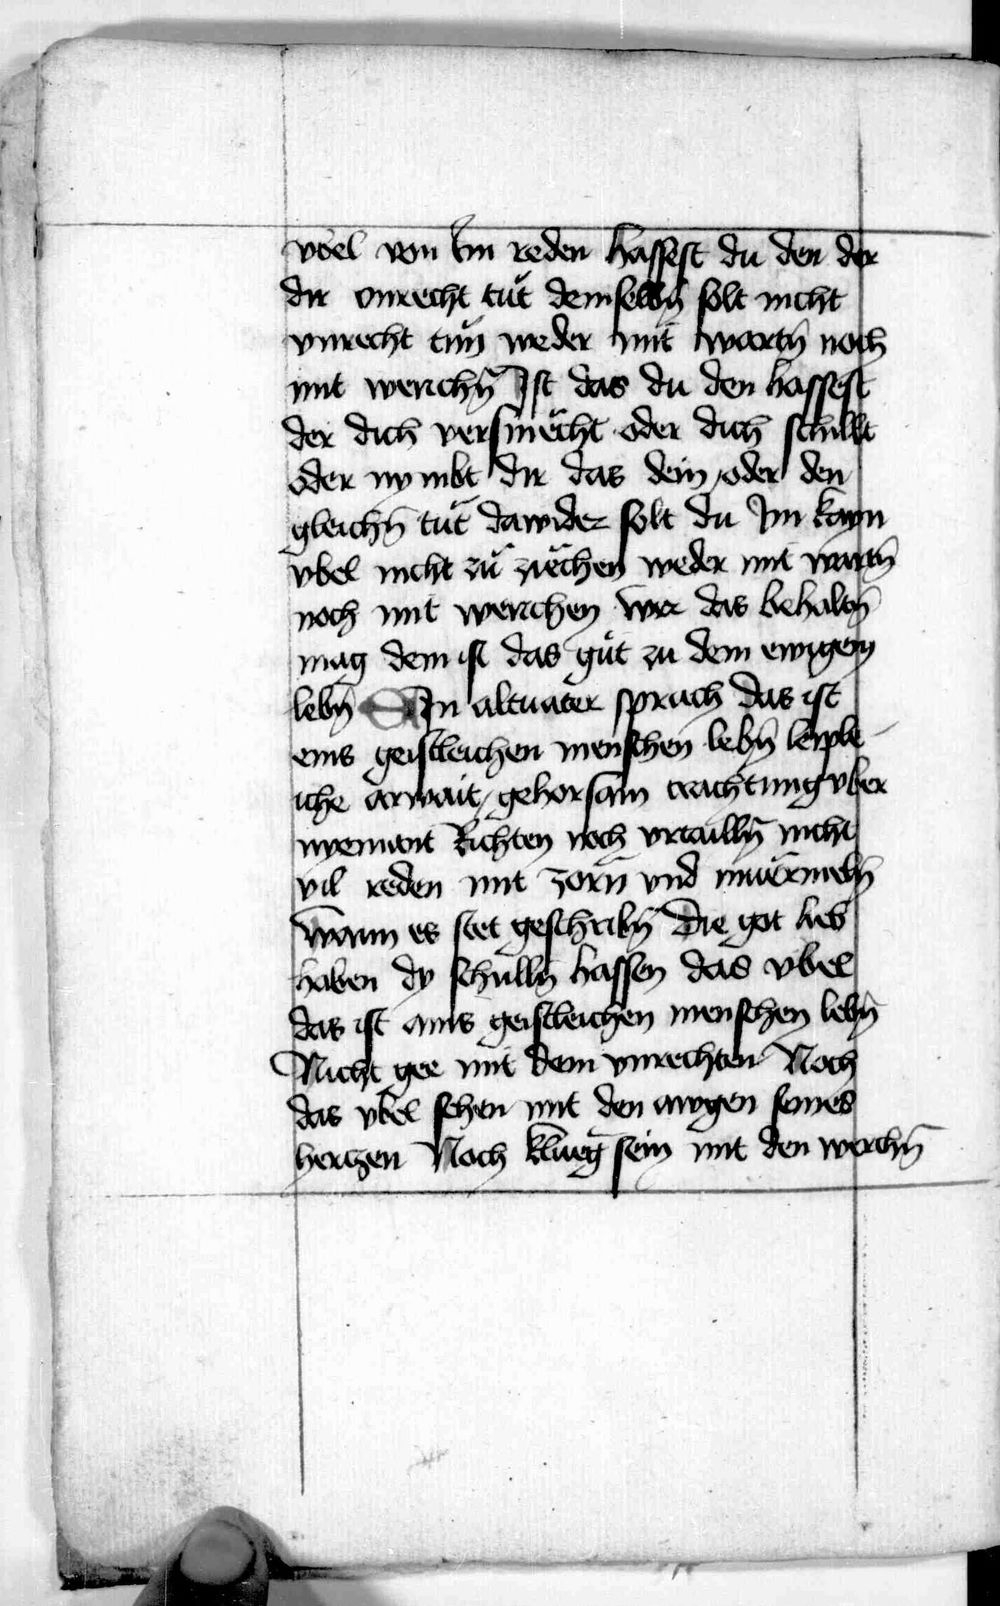 vbel von Im reden hassest du den der
dir vnrecht tuͤt demselbn̄ solt nicht
vnrecht tuͤn weder mit wortn̄ noch
mit werichn̄ Ist das du den hassest
der dich versmeͤcht oder dich schillt
oder nymbt dir das dein / oder den
gleichn̄ tuͤt dawider solt du Im kayn
vbel nicht zuͤ zieͤchen weder mit wartn̄
noch mit werichen wer das behaltn̄
mag dem ist das guͤt zu dem ewigen
lebn̄ Ain altuater sprach das ist
eins geistleichen menschen lebn̄ leiple
iche arwait / gehorsam trachtung vber
nyemant Richten noch vrtailln̄ nicht
vil reden mit zorn̄ vnd mueͤrmeln̄
wann es stet geschribn̄ Die got lieb
haben dy schulln̄ hassen das vbel
das ist ains geistleichen menschen lebn̄
Nicht gee mit dem vnrechten Noch
das vbel sehen mit den awgen seines
hertzen Noch klueg sein mit den werchn̄